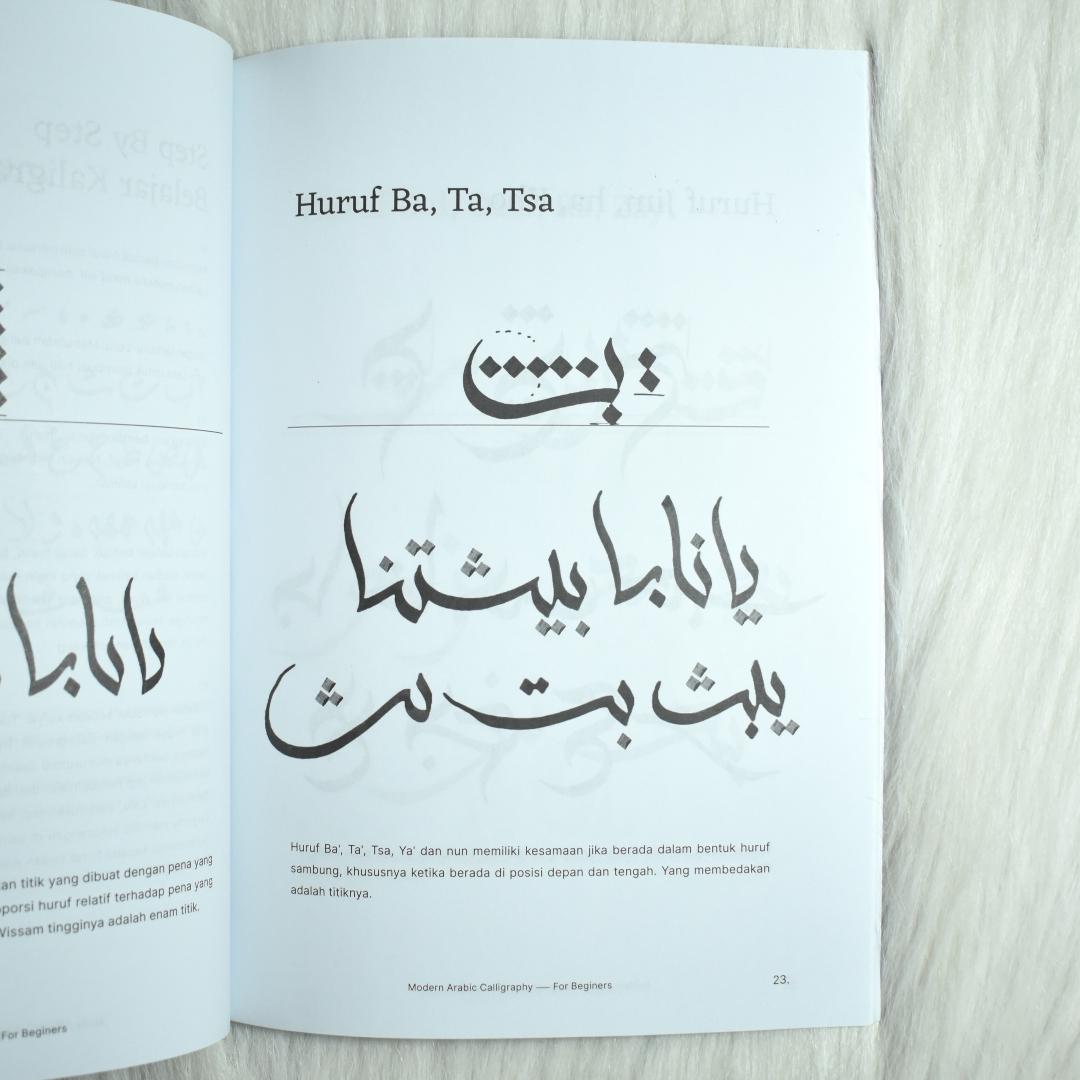 Huruf Ba, Ta, Tsa
يانابا بيثتنا
يبث بت نث
Huruf Ba', Ta', Tsa, Ya' dan nun memiliki kesamaan jika berada dalam bentuk huruf
sambung, khususnya ketika berada di posisi depan dan tengah. Yang membedakan
adalah titiknya.
Modern Arabic Calligraphy — For Beginers
23.
Step By Step
an titik yang dibuat dengan pena yang
porsi huruf relatif terhadap pena yang
Wissam tingginya adalah enam titik.
For Beginers